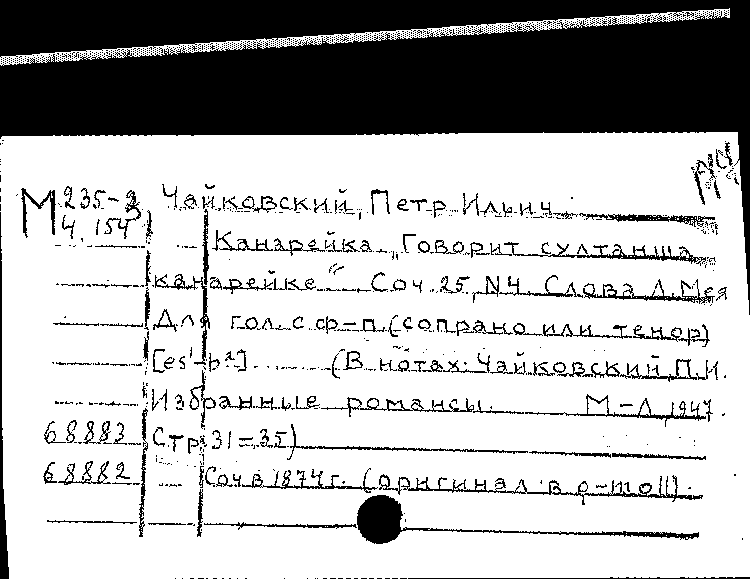 М 235-3 Чайковский, Петр Ильич
4.154
Канарейка. „Говорит султанша
канарейке“ Соч. 25, N4. Слова Л. Мея
Для гол. с ф-п. (сопрано или тенор)
[es¹-b²] (В нотах: Чайковский, П.И.
Избранные романсы. М-Л, 1947.
68883 Стр. 31=35)
68882 Соч в 1874 г. (оригинал в g-moll).